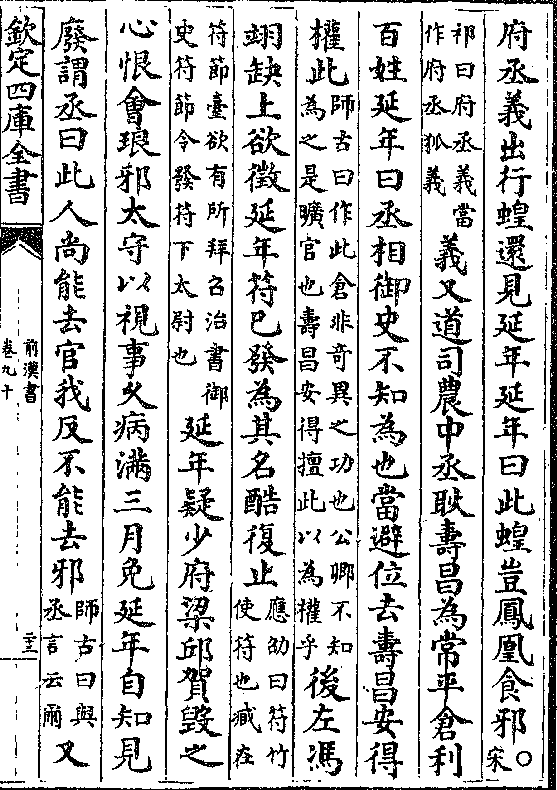 府丞義出行蝗還見延年延年曰此蝗豈鳳凰食邪○宋
祁曰府丞義當
作府丞狐義
義又道司農中丞耿壽昌為常平倉利
百姓延年曰丞相御史不知為也當避位去壽昌安得
權此
師古曰作此倉非奇異之功也公卿不知
為之是曠官也壽昌安得擅此以為權乎
後左馮
翊缺上欲徵延年符已發為其名酷復止
應劭曰符竹
使符也臧在
符節臺欲有所拜召治書御
史符節令發符下太尉也
延年疑少府梁邱賀毀之
心恨會琅邪太守以視事久病滿三月免延年自知見
廢謂丞曰此人尚能去官我反不能去邪
師古曰與
丞言云爾
又
欽定四庫全書
前漢書
卷九十